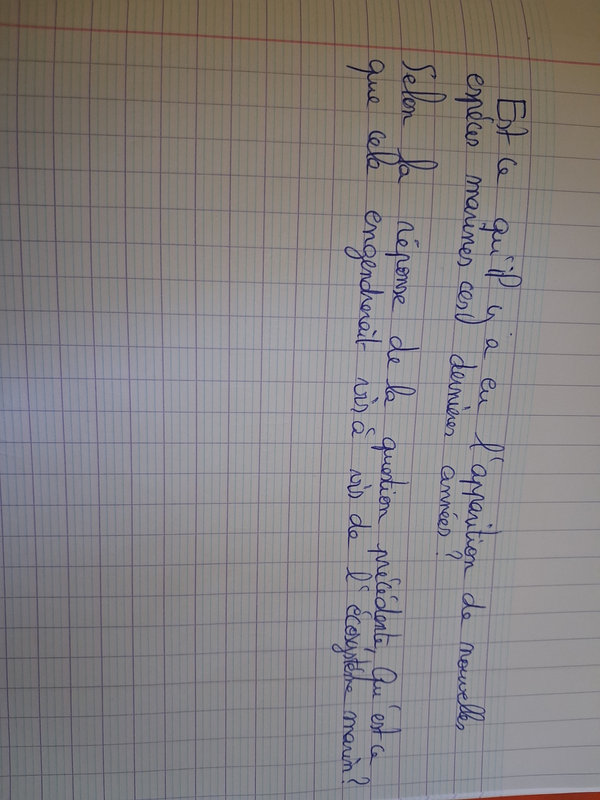 Est ce qu'il y a eu l'apparition de nouvelles
espèces marines ces dernières années ?
Selon la réponse de la question précédente, Qu'est ce
que cela engendrerait vis à vis de l'écosystème marin ?